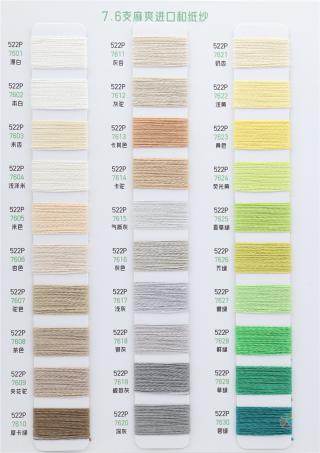 7.6支麻爽进口和纸纱
522P
7601
漂白
522P
7602
本白
522P
7603
米杏
522P
7604
浅漂米
522P
7605
米色
522P
7606
杏色
522P
7607
驼色
522P
7608
茶色
522P
7609
夹花驼
522P
7610
摩卡绿
522P
7611
灰杏
522P
7612
灰驼
522P
7613
卡其色
522P
7614
卡驼
522P
7615
气质灰
522P
7616
灰色
522P
7617
浅灰
522P
7618
银灰
522P
7619
522P
7620
深灰
522P
7621
奶杏
522P
7622
浅黄
522P
7623
黄色
522P
7624
荧光黄
522P
7625
青草绿
522P
7626
芥绿
522P
7627
522P
7628
鲜绿
522P
7629
草绿
522P
7630
碧绿